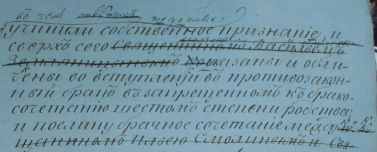 въ чемъ
учинили собственное признаніе, и
сверхъ сего Священникомъ Василіемъ
показаны и обли-
чены во вступленіи въ противозакон-
ный бракъ въ запрещенномъ къ брако-
сочетанію шестомъ степени родства,
и поелику брачное сочетаніе между
Ильею Смолинымъ и